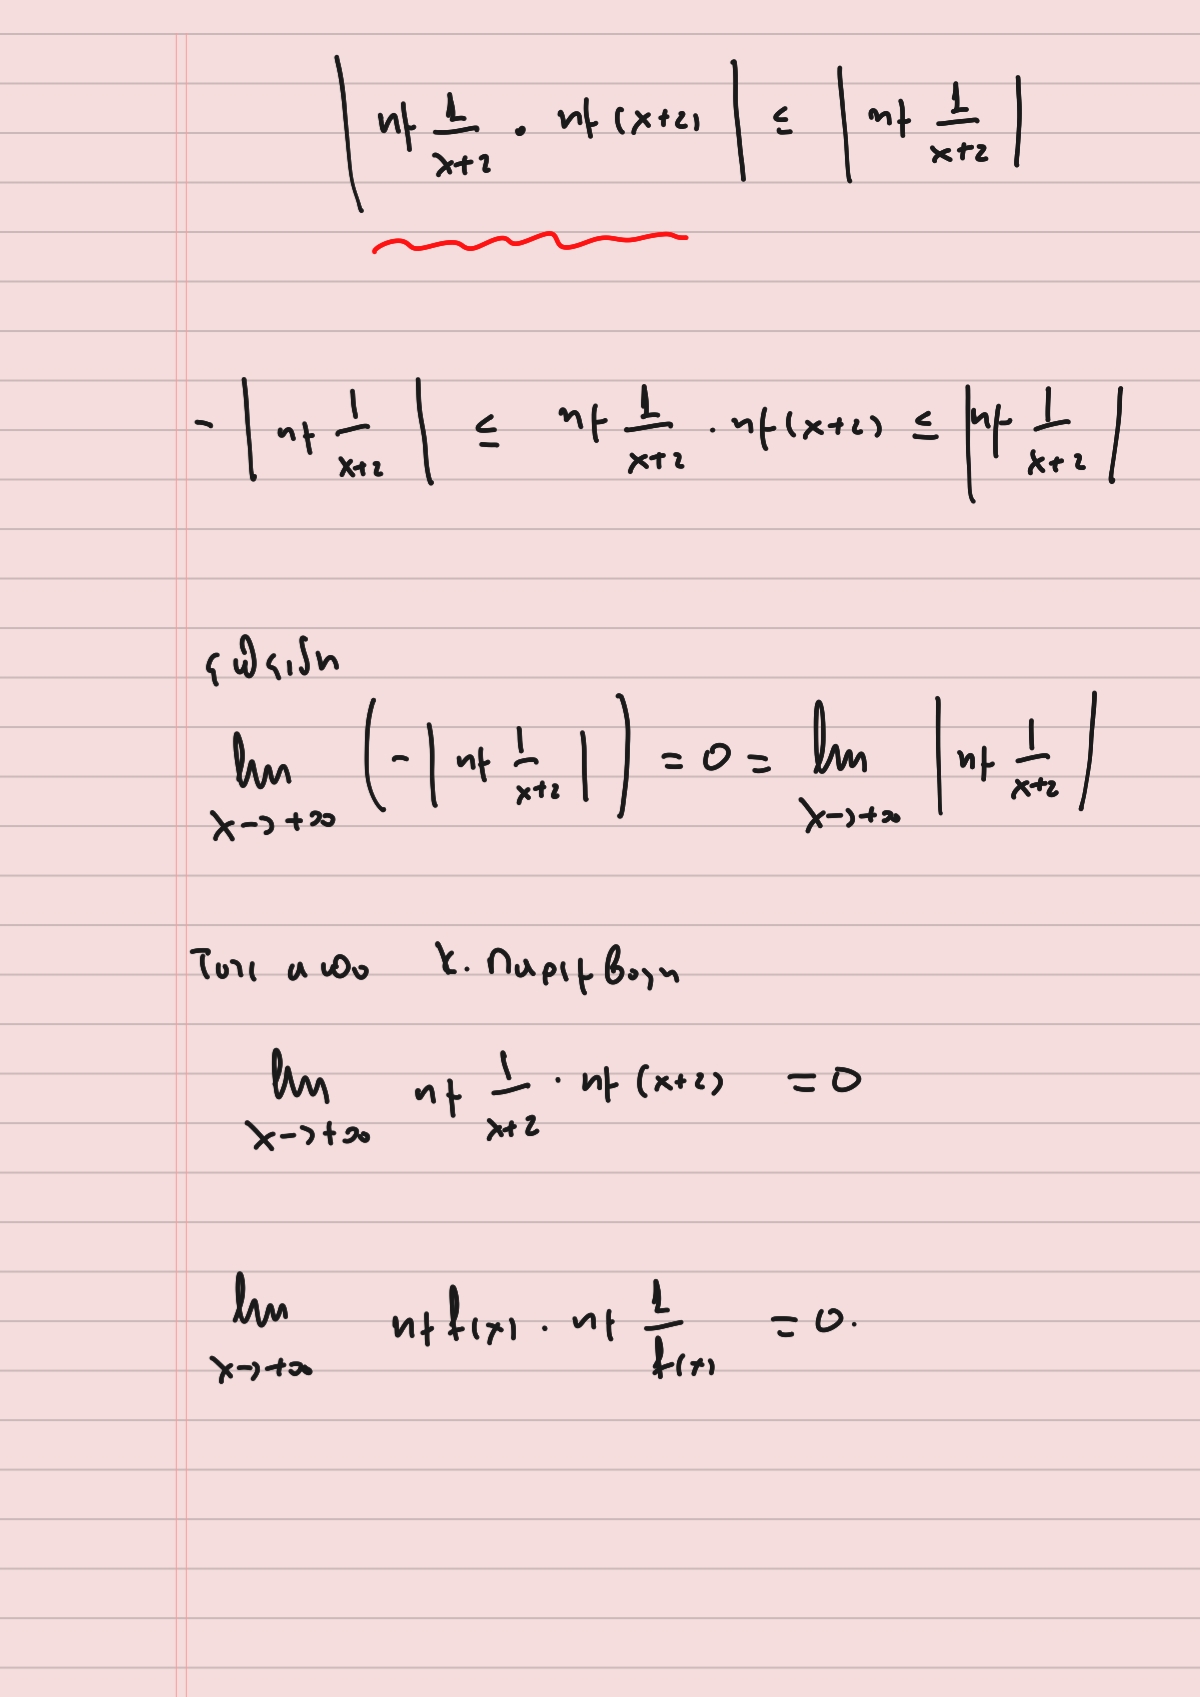 | ημ 1/(x+2) · ημ (x+2) | ≤ | ημ 1/(x+2) |
- | ημ 1/(x+2) | ≤ ημ 1/(x+2) · ημ (x+2) ≤ | ημ 1/(x+2) |
lim x→+∞ ( - | ημ 1/(x+2) | ) = 0 = lim x→+∞ | ημ 1/(x+2) |
Τοτε απο κ. Παρεμβολη
lim x→+∞ ημ 1/(x+2) · ημ (x+2) = 0
lim x→+∞ ημ f(x) · ημ 1/f(x) = 0.